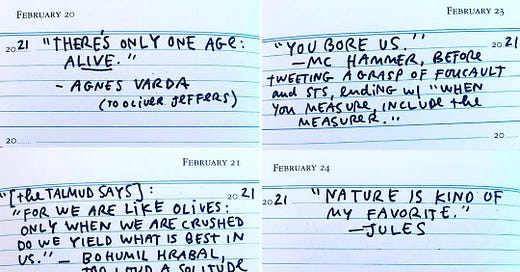 FEBRUARY 20
2021 "THERE'S ONLY ONE AGE:
ALIVE."
- AGNES VARDA
(TO OLIVER JEFFERS)
20
FEBRUARY 21
2021
"[the TALMUD SAYS]:
"FOR WE ARE LIKE OLIVES:
ONLY WHEN WE ARE CRUSHED
DO WE YIELD WHAT IS BEST IN
US." — BOHUMIL HRABAL,
TOO LOUD A SOLITUDE
FEBRUARY 23
2021
"YOU BORE US."
—MC HAMMER, BEFORE
TWEETING A GRASP OF FOUCAULT
and STS, ENDING W/ "WHEN
YOU MEASURE, INCLUDE the
MEASURER."
20
FEBRUARY 24
2021 "NATURE IS KIND OF
MY FAVORITE."
—JULES